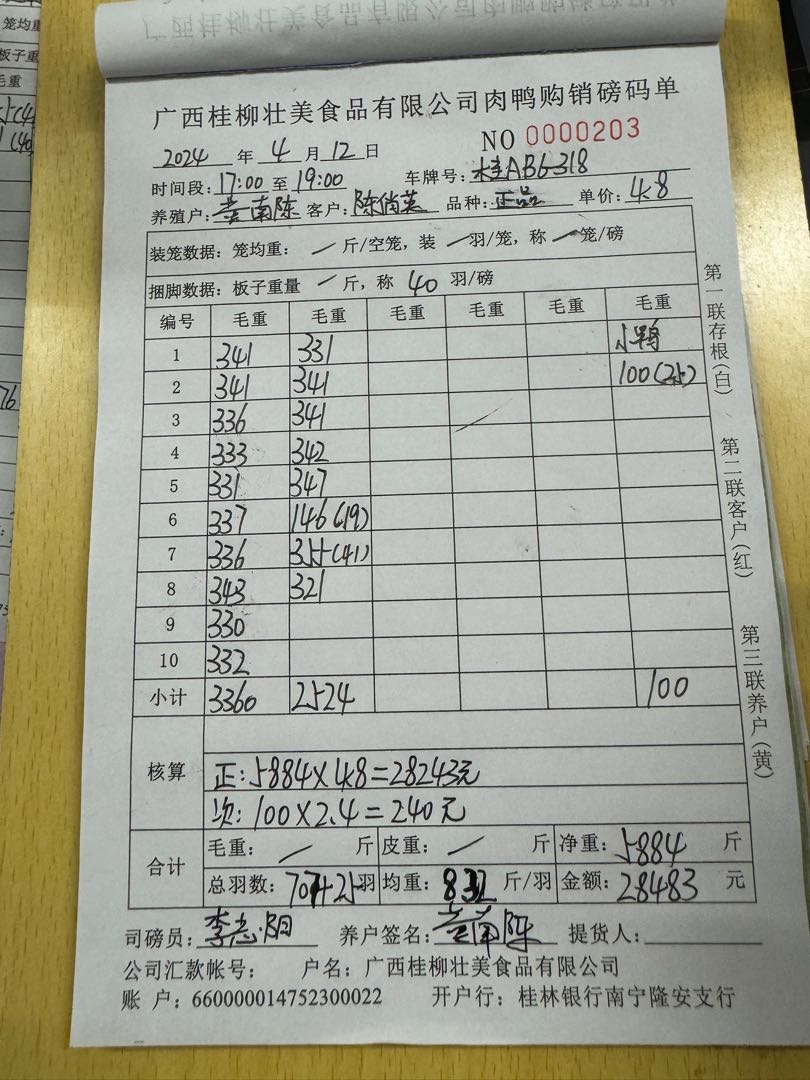 广西桂柳壮美食品有限公司肉鸭购销磅码单
NO 0000203
2024 年 4 月 12 日
时间段: 17:00 至 19:00 车牌号: 桂AB6318
养殖户: 黄南陈 客户: 陈俏英 品种: 正品 单价: 4.8
装笼数据: 笼均重: / 斤/空笼, 装 / 羽/笼, 称 / 笼/磅
捆脚数据: 板子重量 / 斤, 称 40 羽/磅
编号 毛重 毛重 毛重 毛重 毛重 毛重
1 341 331 小鸭
2 341 341 100(25)
3 336 341
4 333 342
5 331 347
6 337 146(19)
7 336 355(41)
8 343 321
9 330
10 332
小计 3360 2524 100
核算
正: 5884×4.8=28243元
次: 100×2.4=240元
合计
毛重: / 斤 皮重: / 斤 净重: 5884 斤
总羽数: 707+25羽 均重: 8.32 斤/羽 金额: 28483 元
司磅员: 李志阳 养户签名: 黄南陈 提货人:
公司汇款帐号: 户名: 广西桂柳壮美食品有限公司
账 户: 660000014752300022 开户行: 桂林银行南宁隆安支行
第一联存根(白)
第二联客户(红)
第三联养户(黄)
笼均重
板子重
毛重